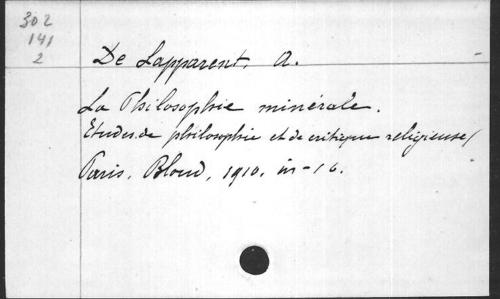 302
141
2
De Lapparent, A.
La Philosophie minérale.
Etudes de philosophie et de critique religieuse/
Paris, Bloud, 1910. in-16.